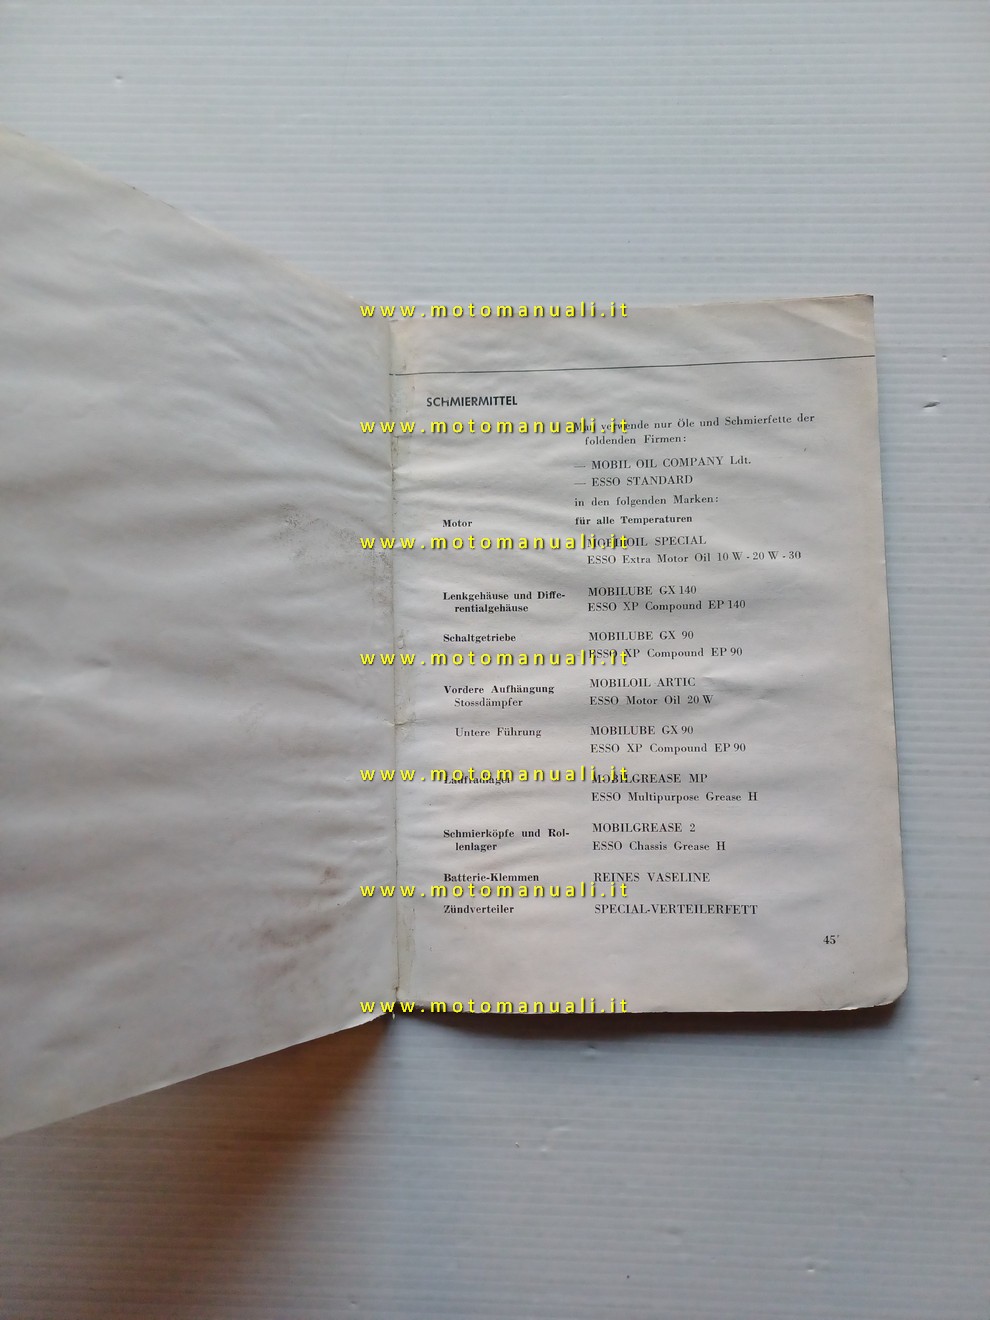 www.motomanuali.it
SCHMIERMITTEL
Man verwende nur Öle und Schmierfette der
www.motomanuali.it
foldenden Firmen:
— MOBIL OIL COMPANY Ldt.
— ESSO STANDARD
in den folgenden Marken:
Motor
für alle Temperaturen
www.motomanuali.it
MOBILOIL SPECIAL
ESSO Extra Motor Oil 10 W - 20 W - 30
Lenkgehäuse und Diffe-
rentialgehäuse
MOBILUBE GX 140
ESSO XP Compound EP 140
Schaltgetriebe
MOBILUBE GX 90
ESSO XP Compound EP 90
www.motomanuali.it
Vordere Aufhängung
Stossdämpfer
MOBILOIL ARTIC
ESSO Motor Oil 20 W
Untere Führung
MOBILUBE GX 90
ESSO XP Compound EP 90
www.motomanuali.it
Laufradlager
MOBILGREASE MP
ESSO Multipurpose Grease H
Schmierköpfe und Rol-
lenlager
MOBILGREASE 2
ESSO Chassis Grease H
Batterie-Klemmen
REINES VASELINE
www.motomanuali.it
Zündverteiler
SPECIAL-VERTEILERFETT
45
www.motomanuali.it